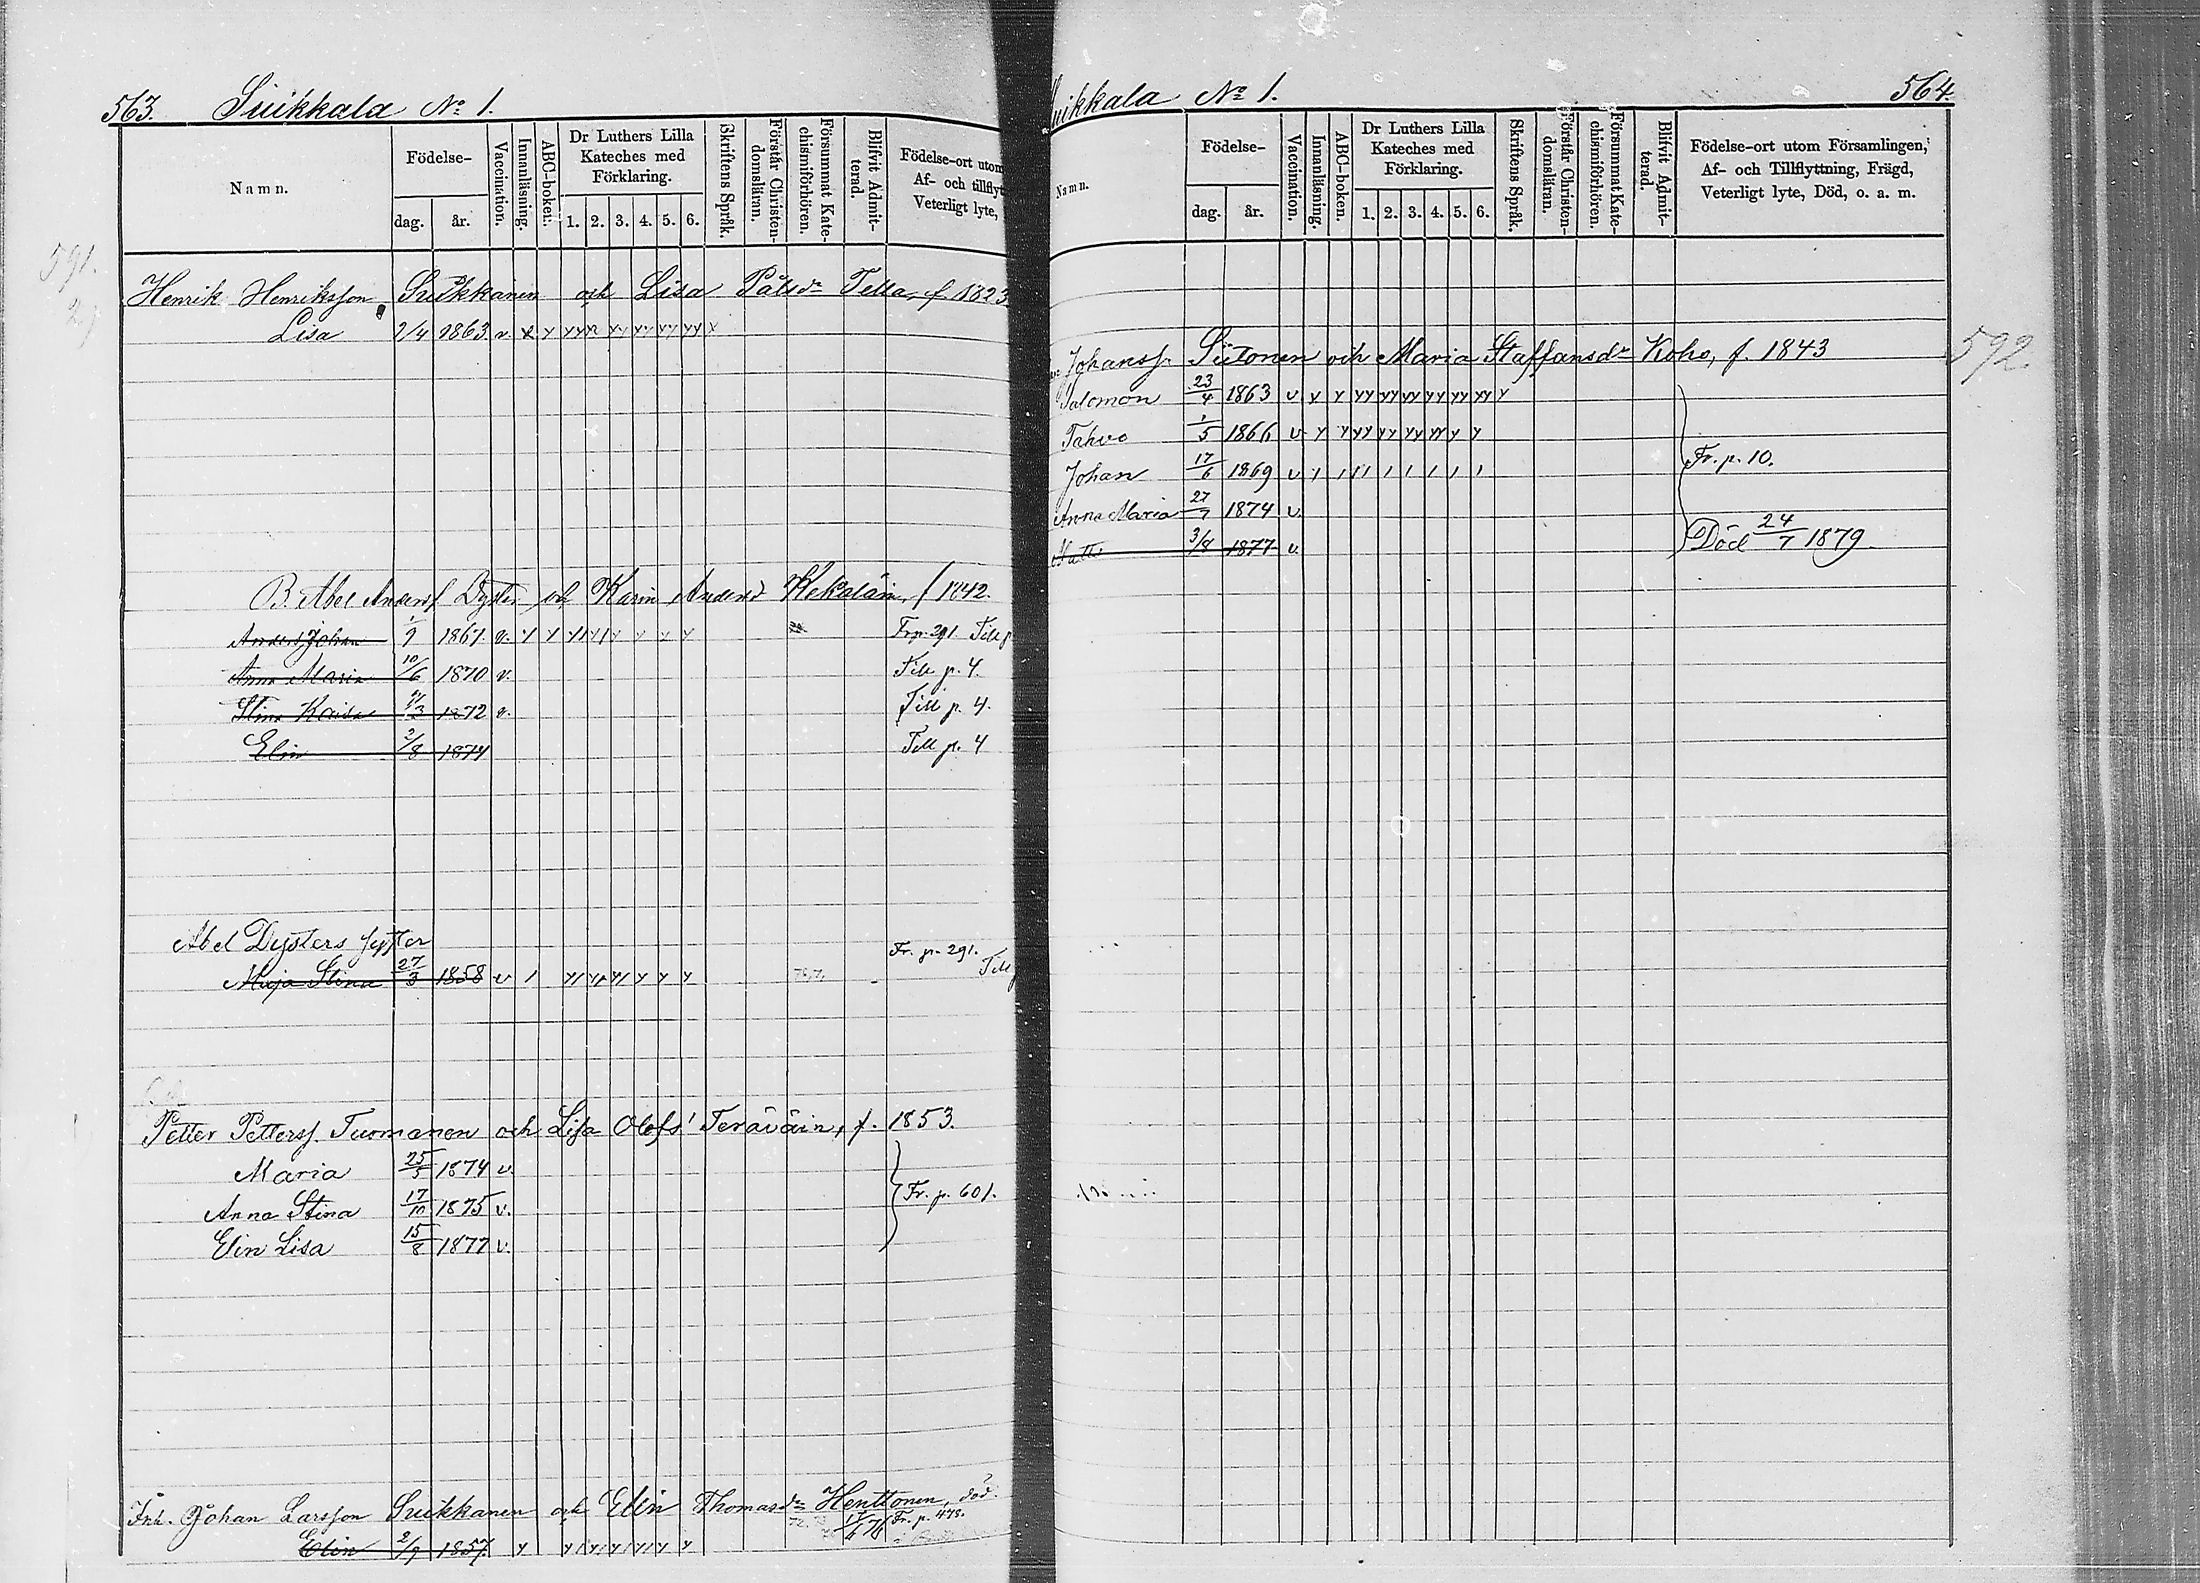 563. Suikkala No 1.
Namn.
Födelse-
dag. år.
Vaccination.
Innanläsning.
ABC-boken.
Dr Luthers Lilla Kateches med Förklaring.
1. 2. 3. 4. 5. 6.
Skriftens Språk.
Förstår Christendomsläran.
Försummat Katechismiförhören.
Blifvit Admitterad.
Födelse-ort utom
Af- och tillflyt
Veterligt lyte,
591.
Henrik Henriksson Suikkanen och Lisa Pålsdr Tella, f. 1823
Lisa 2/4 1863 v.
B. Abel Anderss Dyster och Karin Andersd Kekäläin, f 1842.
Anders Johan 1/9 1867. v. Frp. 291. Till p
Anna Maria 10/6 1870 v. Till p. 4.
Stina Kaisa 1872 v. Till p. 4.
Elin 2/8 1874 Till p. 4
Abel Dysters syster Fr. p. 291.
Maja Stina 27/3 1858 v Till
Petter Petterss. Tuomanen och Lisa Olofs' Teräväin, f. 1853.
Maria 25/5 1874 v.
Anna Stina 17/10 1875 v. Fr. p. 601.
Elin Lisa 15/8 1877 v.
Inh. Johan Larsson Suikkanen och Elin Thomasdr Henttonen, död.
Fr. p. 478.
Elin 2/9 1857.
uikkala No 1. 564.
Namn.
Födelse-
dag. år.
Vaccination.
Innanläsning.
ABC-boken.
Dr Luthers Lilla Kateches med Förklaring.
1. 2. 3. 4. 5. 6.
Skriftens Språk.
Förstår Christendomsläran.
Försummat Katechismiförhören.
Blifvit Admitterad.
Födelse-ort utom Församlingen,
Af- och Tillflyttning, Frägd,
Veterligt lyte, Död, o. a. m.
Johanss. Siitonen och Maria Staffansdr Koho, f. 1843 592.
Salomon 23/4 1863 v
Tahvo 1/5 1866 v
Johan 17/6 1869 v Fr. p. 10.
Anna Maria 27/7 1874 v.
Matti 3/8 1877 v. Död 24/7 1879.